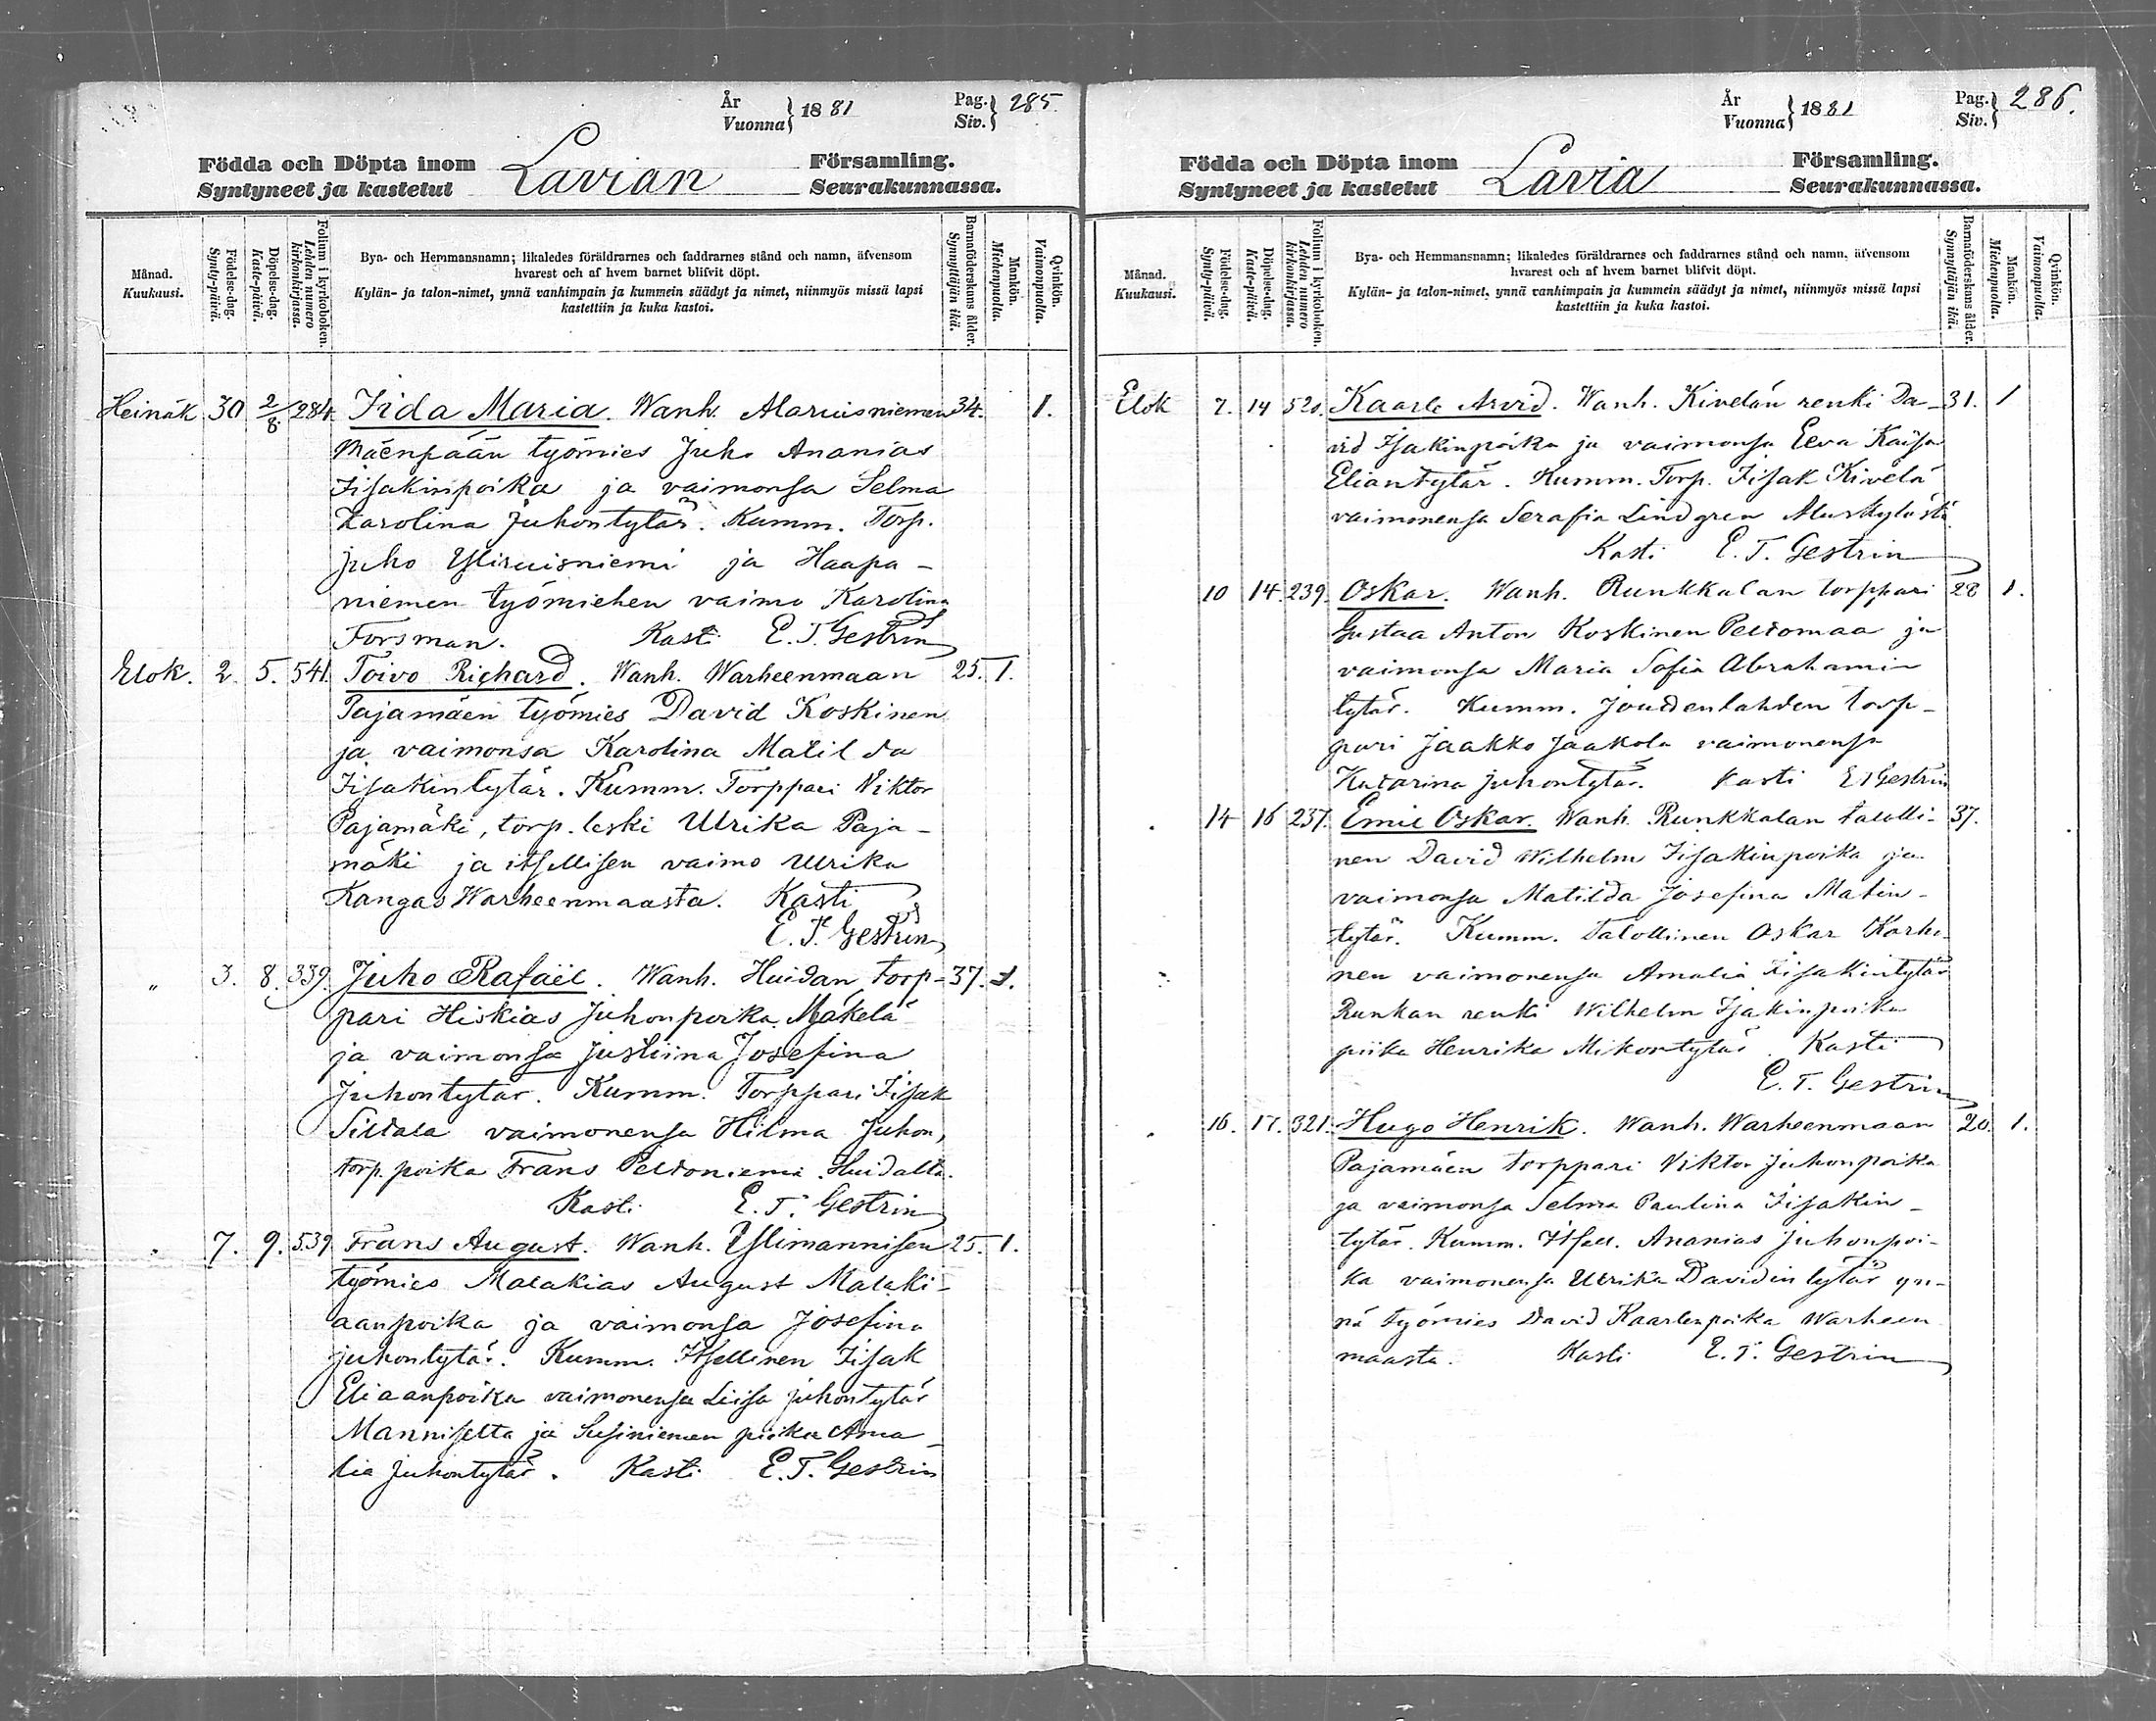 År
Vuonna } 1881
Pag.
Siv. } 285.
Födda och Döpta inom
Syntyneet ja kastetut
Lavian
Församling.
Seurakunnassa.
Månad.
Kuukausi.
Födelse-dag.
Synty-päivä.
Döpelse-dag.
Kaste-päivä.
Folium i kyrkoboken.
Lehden numero kirkonkirjassa.
Bya- och Hemmansnamn; likaledes föräldrarnes och faddrarnes stånd och namn, äfvensom
hvarest och af hvem barnet blifvit döpt.
Kylän- ja talon-nimet, ynnä vanhimpain ja kummein säädyt ja nimet, niinmyös missä lapsi
kastettiin ja kuka kastoi.
Barnaföderskans ålder.
Synnyttäjän ikä.
Mankön.
Miehenpuolia.
Qvinkön.
Vaimonpuolia.
Heinäk 30 2/8. 284. Iida Maria. Wanh. Alaruisniemen 34. 1.
Mäenpään työmies Juho Ananias
Iisakinpoika ja vaimonsa Selma
Karolina Juhontytär. Kumm. Torp.
Juho Yliruisniemi ja Haapa-
niemen työmiehen vaimo Karolina
Forsman. Kasti E. T. Gestrin
Elok. 2. 5. 541. Toivo Richard. Wanh. Warheenmaan 25. 1.
Pajamäen työmies David Koskinen
ja vaimonsa Karolina Matilda
Iisakintytär. Kumm. Torppari Viktor
Pajamäki, torp. leski Ulrika Paja-
mäki ja itsellisen vaimo Ulrika
Kangas Warheenmaasta. Kasti
E. T. Gestrin
" 3. 8. 339. Juho Rafaël. Wanh. Huidan torp- 37. 1.
pari Hiskias Juhonpoika Mäkelä
ja vaimonsa Justiina Josefina
Juhontytar. Kumm. Torppari Iisak
Siltala vaimonensa Hilma Juhon,
torp. poika Frans Peltoniemi Huidalta.
Kasti E. T. Gestrin
. 7. 9. 539 Frans August. Wanh. Ylimannisen 25. 1.
työmies Malakias August Malaki-
aanpoika ja vaimonsa Josefina
Juhontytär. Kumm. Itsellinen Iisak
Eliaanpoika vaimonensa Liisa Juhontytär
Manniselta ja Susiniemen piika Ama-
lia Juhontytär. Kasti E. T. Gestrin
År
Vuonna } 1881
Pag.
Siv. } 286.
Födda och Döpta inom
Syntyneet ja kastetut
Lavia
Församling.
Seurakunnassa.
Månad.
Kuukausi.
Födelse-dag.
Synty-päivä.
Döpelse-dag.
Kaste-päivä.
Folium i kyrkoboken.
Lehden numero kirkonkirjassa.
Bya- och Hemmansnamn; likaledes föräldrarnes och faddrarnes stånd och namn, äfvensom
hvarest och af hvem barnet blifvit döpt.
Kylän- ja talon-nimet, ynnä vanhimpain ja kummein säädyt ja nimet, niinmyös missä lapsi
kastettiin ja kuka kastoi.
Barnaföderskans ålder.
Synnyttäjän ikä.
Mankön.
Miehenpuolia.
Qvinkön.
Vaimonpuolia.
Elok 7. 14 520. Kaarle Arvid. Wanh. Kivelän renki Da- 31. 1
vid Isakinpoika ja vaimonsa Eeva Kaisa
Eliantytär. Kumm. Torp. Iisak Kivelä
vaimonensa Serafia Lindgren
Kasti E. T. Gestrin
10 14. 239. Oskar. Wanh. Runkkalan torppari 28 1.
Gustaa Anton Koskinen Peltomaa ja
vaimonsa Maria Sofia Abrahamin
tytär. Kumm. Joudenlahden torp-
pari Jaakko Jaakola vaimonensa
Katarina Juhontytär. Kasti E T Gestrin
14 16 237. Emil Oskar. Wanh. Runkkalan talolli- 37.
nen David Wilhelm Iisakinpoika ja
vaimonsa Matilda Josefina Matin-
tytär. Kumm. Talollinen Oskar Karhi-
nen vaimonensa Amalia Iisakintytär
Runkan renki Wilhelm Isakinpoika
piika Henrika Mikontytär. Kasti
E. T. Gestrin
16. 17. 321. Hugo Henrik. Wanh. Warheenmaan 20. 1.
Pajamäen torppari Viktor Juhonpoika
ja vaimonsa Selma Paulina Iisakin-
tytär. Kumm. Itsell. Ananias Juhonpoi-
ka vaimonensa Ulrika Davidintytär yn-
nä työmies David Kaarlenpoika Warheen
maasta. Kasti E. T. Gestrin